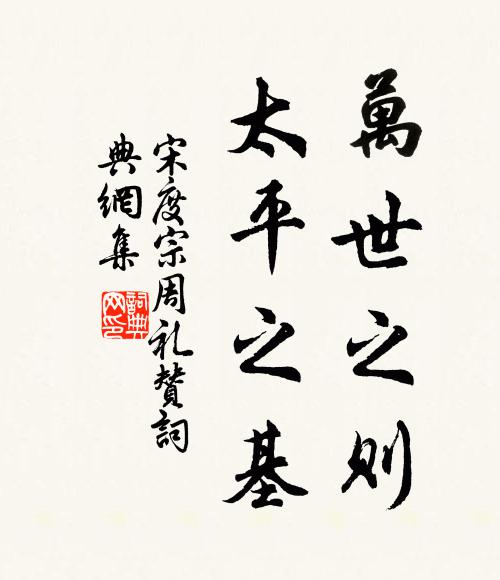 萬世之則
太平之基
宋度宗周礼賛詞
典網集
詞典
网印